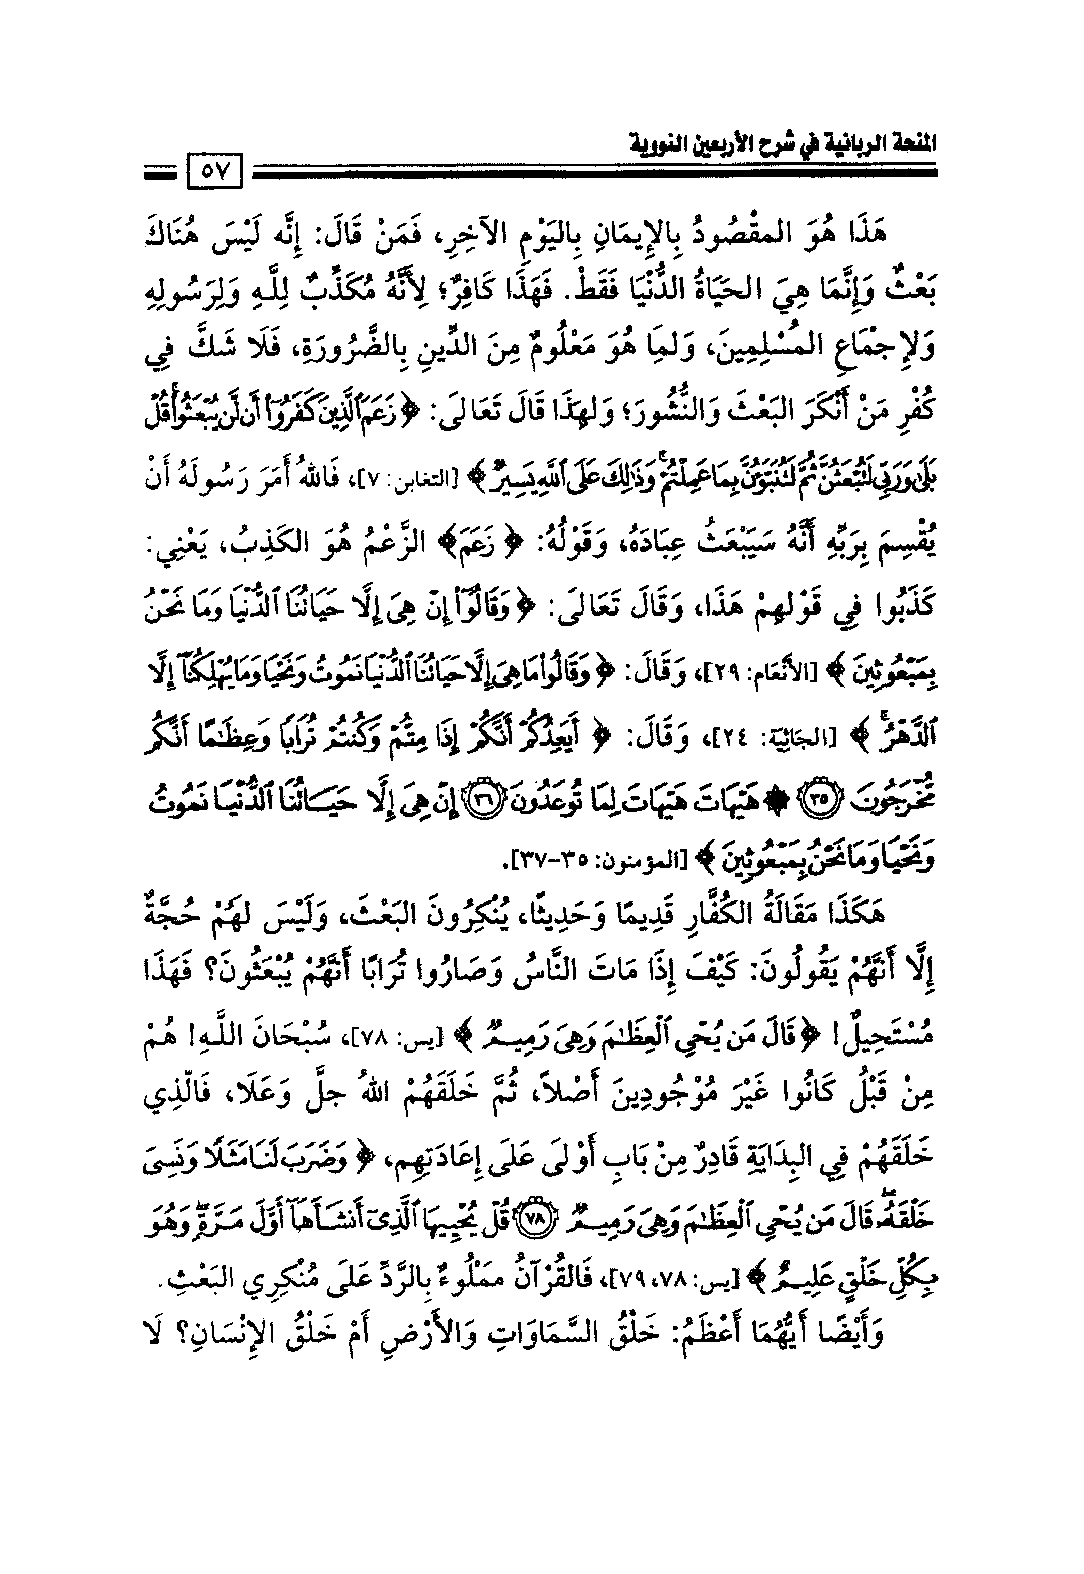 المنحة الربانية في شرح الأربعين النووية
٥٧
هَذَا هُوَ المقْصُودُ بِالإِيمَانِ بِاليَوْمِ الآخِرِ، فَمَنْ قَالَ: إِنَّه لَيْسَ هُنَاكَ
بَعْثٌ وَإِنَّمَا هِيَ الحَيَاةُ الدُّنْيَا فَقَطْ. فَهَذَا كَافِرٌ؛ لِأَنَّهُ مُكَذِّبٌ لِلَّهِ وَلِرَسُولِهِ
وَلإِجْمَاعِ المُسْلِمِينَ، وَلمِا هُوَ مَعْلُومٌ مِنَ الدِّينِ بِالضَّرُورَةِ، فَلَا شَكَّ فِي
كُفْرِ مَنْ أَنْكَرَ البَعْثَ وَالنُّشُورَ؛ وَلهَذَا قَالَ تَعَالَى: ﴿ زَعَمَ ٱلَّذِينَ كَفَرُوٓا۟ أَن لَّن يُبْعَثُوا۟ ۚ قُلْ
بَلَىٰ وَرَبِّى لَتُبْعَثُنَّ ثُمَّ لَتُنَبَّؤُنَّ بِمَا عَمِلْتُمْ ۚ وَذَٰلِكَ عَلَى ٱللَّهِ يَسِيرٌ ﴾ [التغابن: ٧]، فَاللهُ أَمَرَ رَسُولَهُ أَنْ
يُقْسِمَ بِرَبِّهِ أَنَّهُ سَيَبْعَثُ عِبَادَهُ، وَقَوْلُهُ: ﴿ زَعَمَ﴾ الزَّعْمُ هُوَ الكَذِبُ، يَعْنِي:
كَذَبُوا فِي قَوْلهِمْ هَذَا، وَقَالَ تَعَالَى: ﴿ وَقَالُوٓا۟ إِنْ هِىَ إِلَّا حَيَاتُنَا ٱلدُّنْيَا وَمَا نَحْنُ
بِمَبْعُوثِينَ ﴾ [الأنعام: ٢٩]، وَقَالَ: ﴿ وَقَالُوا۟ مَا هِىَ إِلَّا حَيَاتُنَا ٱلدُّنْيَا نَمُوتُ وَنَحْيَا وَمَا يُهْلِكُنَآ إِلَّا
ٱلدَّهْرُ ۚ ﴾ [الجاثية: ٢٤]، وَقَالَ: ﴿ أَيَعِدُكُمْ أَنَّكُمْ إِذَا مِتُّمْ وَكُنتُمْ تُرَابًا وَعِظَٰمًا أَنَّكُم
مُّخْرَجُونَ ٣٥ ۞ هَيْهَاتَ هَيْهَاتَ لِمَا تُوعَدُونَ ٣٦ إِنْ هِىَ إِلَّا حَيَاتُنَا ٱلدُّنْيَا نَمُوتُ
وَنَحْيَا وَمَا نَحْنُ بِمَبْعُوثِينَ ﴾ [المؤمنون: ٣٥-٣٧].
هَكَذَا مَقَالَةُ الكُفَّارِ قَدِيمًا وَحَدِيثًا، يُنْكِرُونَ البَعْثَ، وَلَيْسَ لهُمْ حُجَّةٌ
إِلَّا أَنَّهُمْ يَقُولُونَ: كَيْفَ إِذَا مَاتَ النَّاسُ وَصَارُوا تُرَابًا أَنَّهُمْ يُبْعَثُونَ؟ فَهَذَا
مُسْتَحِيلٌ! ﴿ قَالَ مَن يُحْىِ ٱلْعِظَٰمَ وَهِىَ رَمِيمٌ ﴾ [يس: ٧٨]، سُبْحَانَ اللَّهِ! هُمْ
مِنْ قَبْلُ كَانُوا غَيْرَ مُوْجُودِينَ أَصْلاً، ثُمَّ خَلَقَهُمْ اللهُ جلَّ وَعَلَا، فَالَّذِي
خَلَقَهُمْ فِي البِدَايَةِ قَادِرٌ مِنْ بَابِ أَوْلَى عَلَى إِعَادَتِهِم، ﴿ وَضَرَبَ لَنَا مَثَلًا وَنَسِىَ
خَلْقَهُۥ ۖ قَالَ مَن يُحْىِ ٱلْعِظَٰمَ وَهِىَ رَمِيمٌ ٧٨ قُلْ يُحْيِيهَا ٱلَّذِىٓ أَنشَأَهَآ أَوَّلَ مَرَّةٍ ۖ وَهُوَ
بِكُلِّ خَلْقٍ عَلِيمٌ ﴾ [يس: ٧٨، ٧٩]، فَالقُرْآنُ ممَلُوءٌ بِالرَّدِّ عَلَى مُنْكِرِي البَعْثِ.
وَأَيْضًا أَيُّهُمَا أَعْظَمُ: خَلْقُ السَّمَاوَاتِ وَالأَرْضِ أَمْ خَلْقُ الإِنْسَانِ؟ لَا